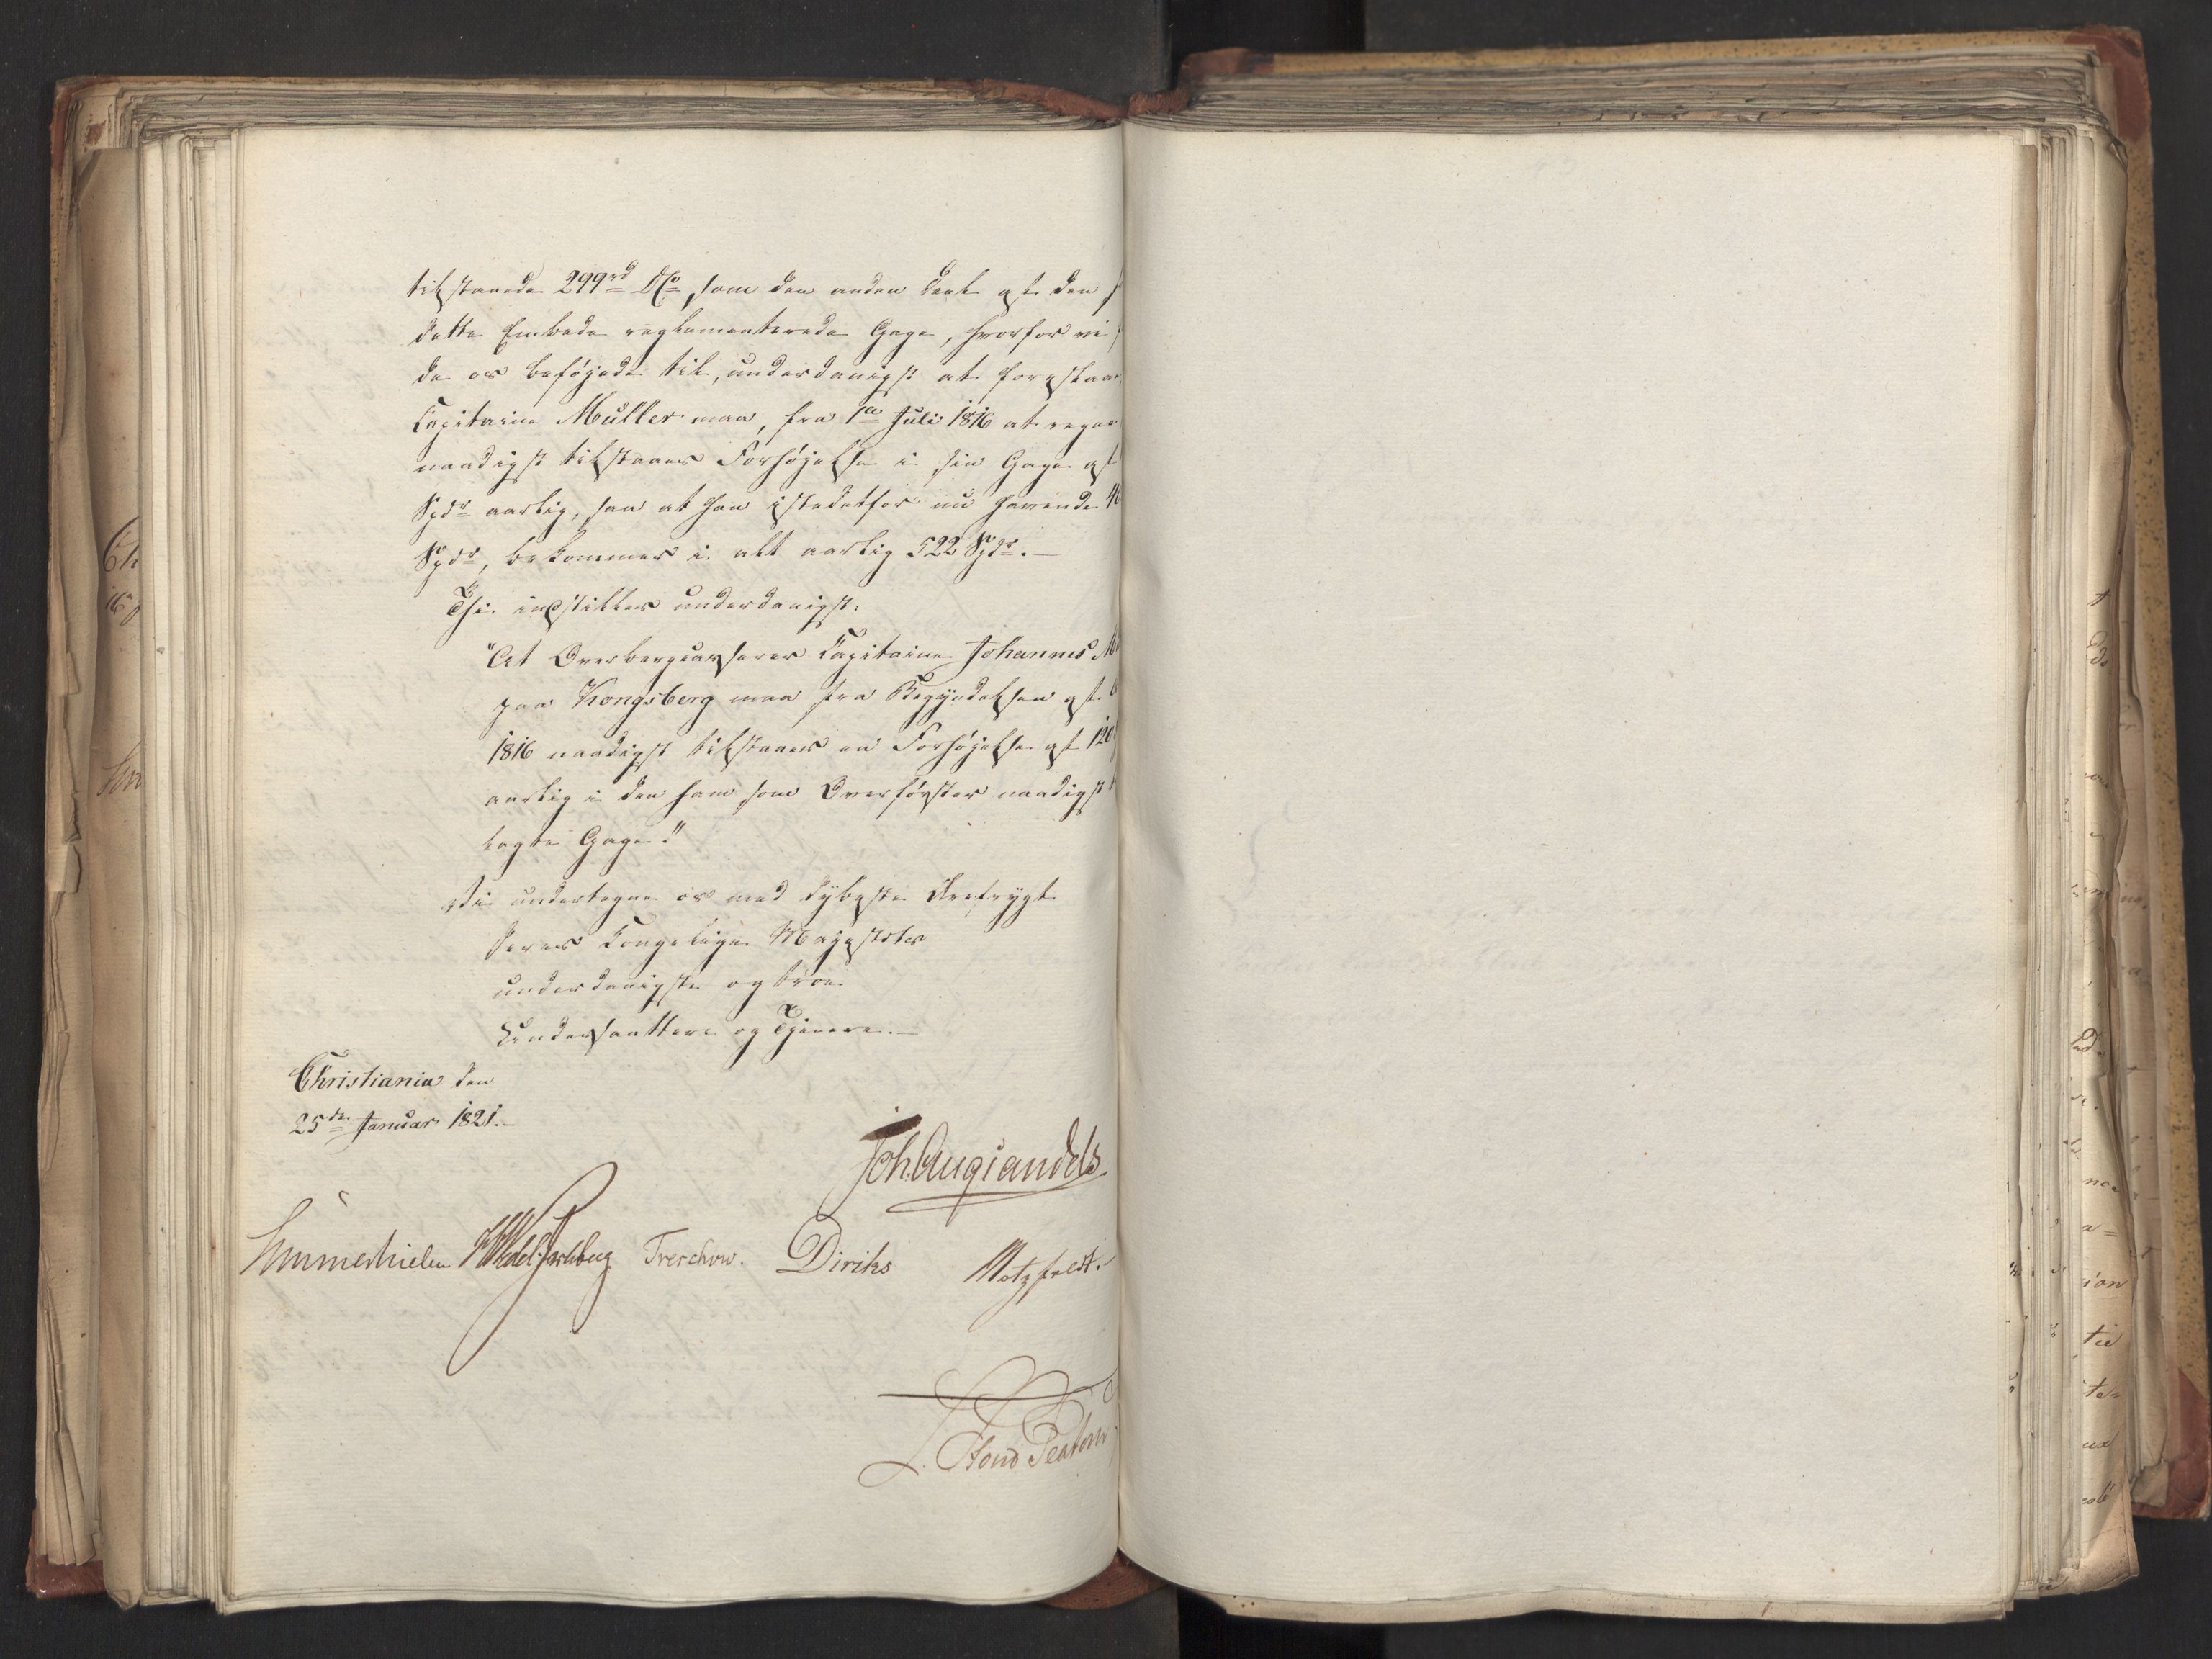 tilstaaede 299 rd SV, som den anden Deel af den
dette Embede reglementerede Gage, hvorfor vi
de os beføjede til, underdanigst at foreslaae,
Capitaine Müller maa, fra 1ste Juli 1816 at regne
naadigst tilstaaes Forhøjelse i sin Gage af
Spdr aarlig, saa at han istedetfor nu havende 4
Spdr, bekommer i alt aarlig 522 Spdr. —
Thi indstilles underdanigst:
"At Overbergcasserer Capitaine Johannes M
paa Kongsberg maa fra Begyndelsen af
1816 naadigst tilstaaes en Forhøjelse af 120
aarlig i den ham som Overførster naadigst
lagte Gage."
Vi undertegne os med dybeste Ærefrygt
Deres Kongelige Majestæts
underdanigste og troe
Undersaatter og Tjenere. —
Christiania den
25de Januar 1821. —
Joh. Aug. Sandels
Sommerhielm HWedel Jarlsberg Treschow. Diriks Motzfeldt.